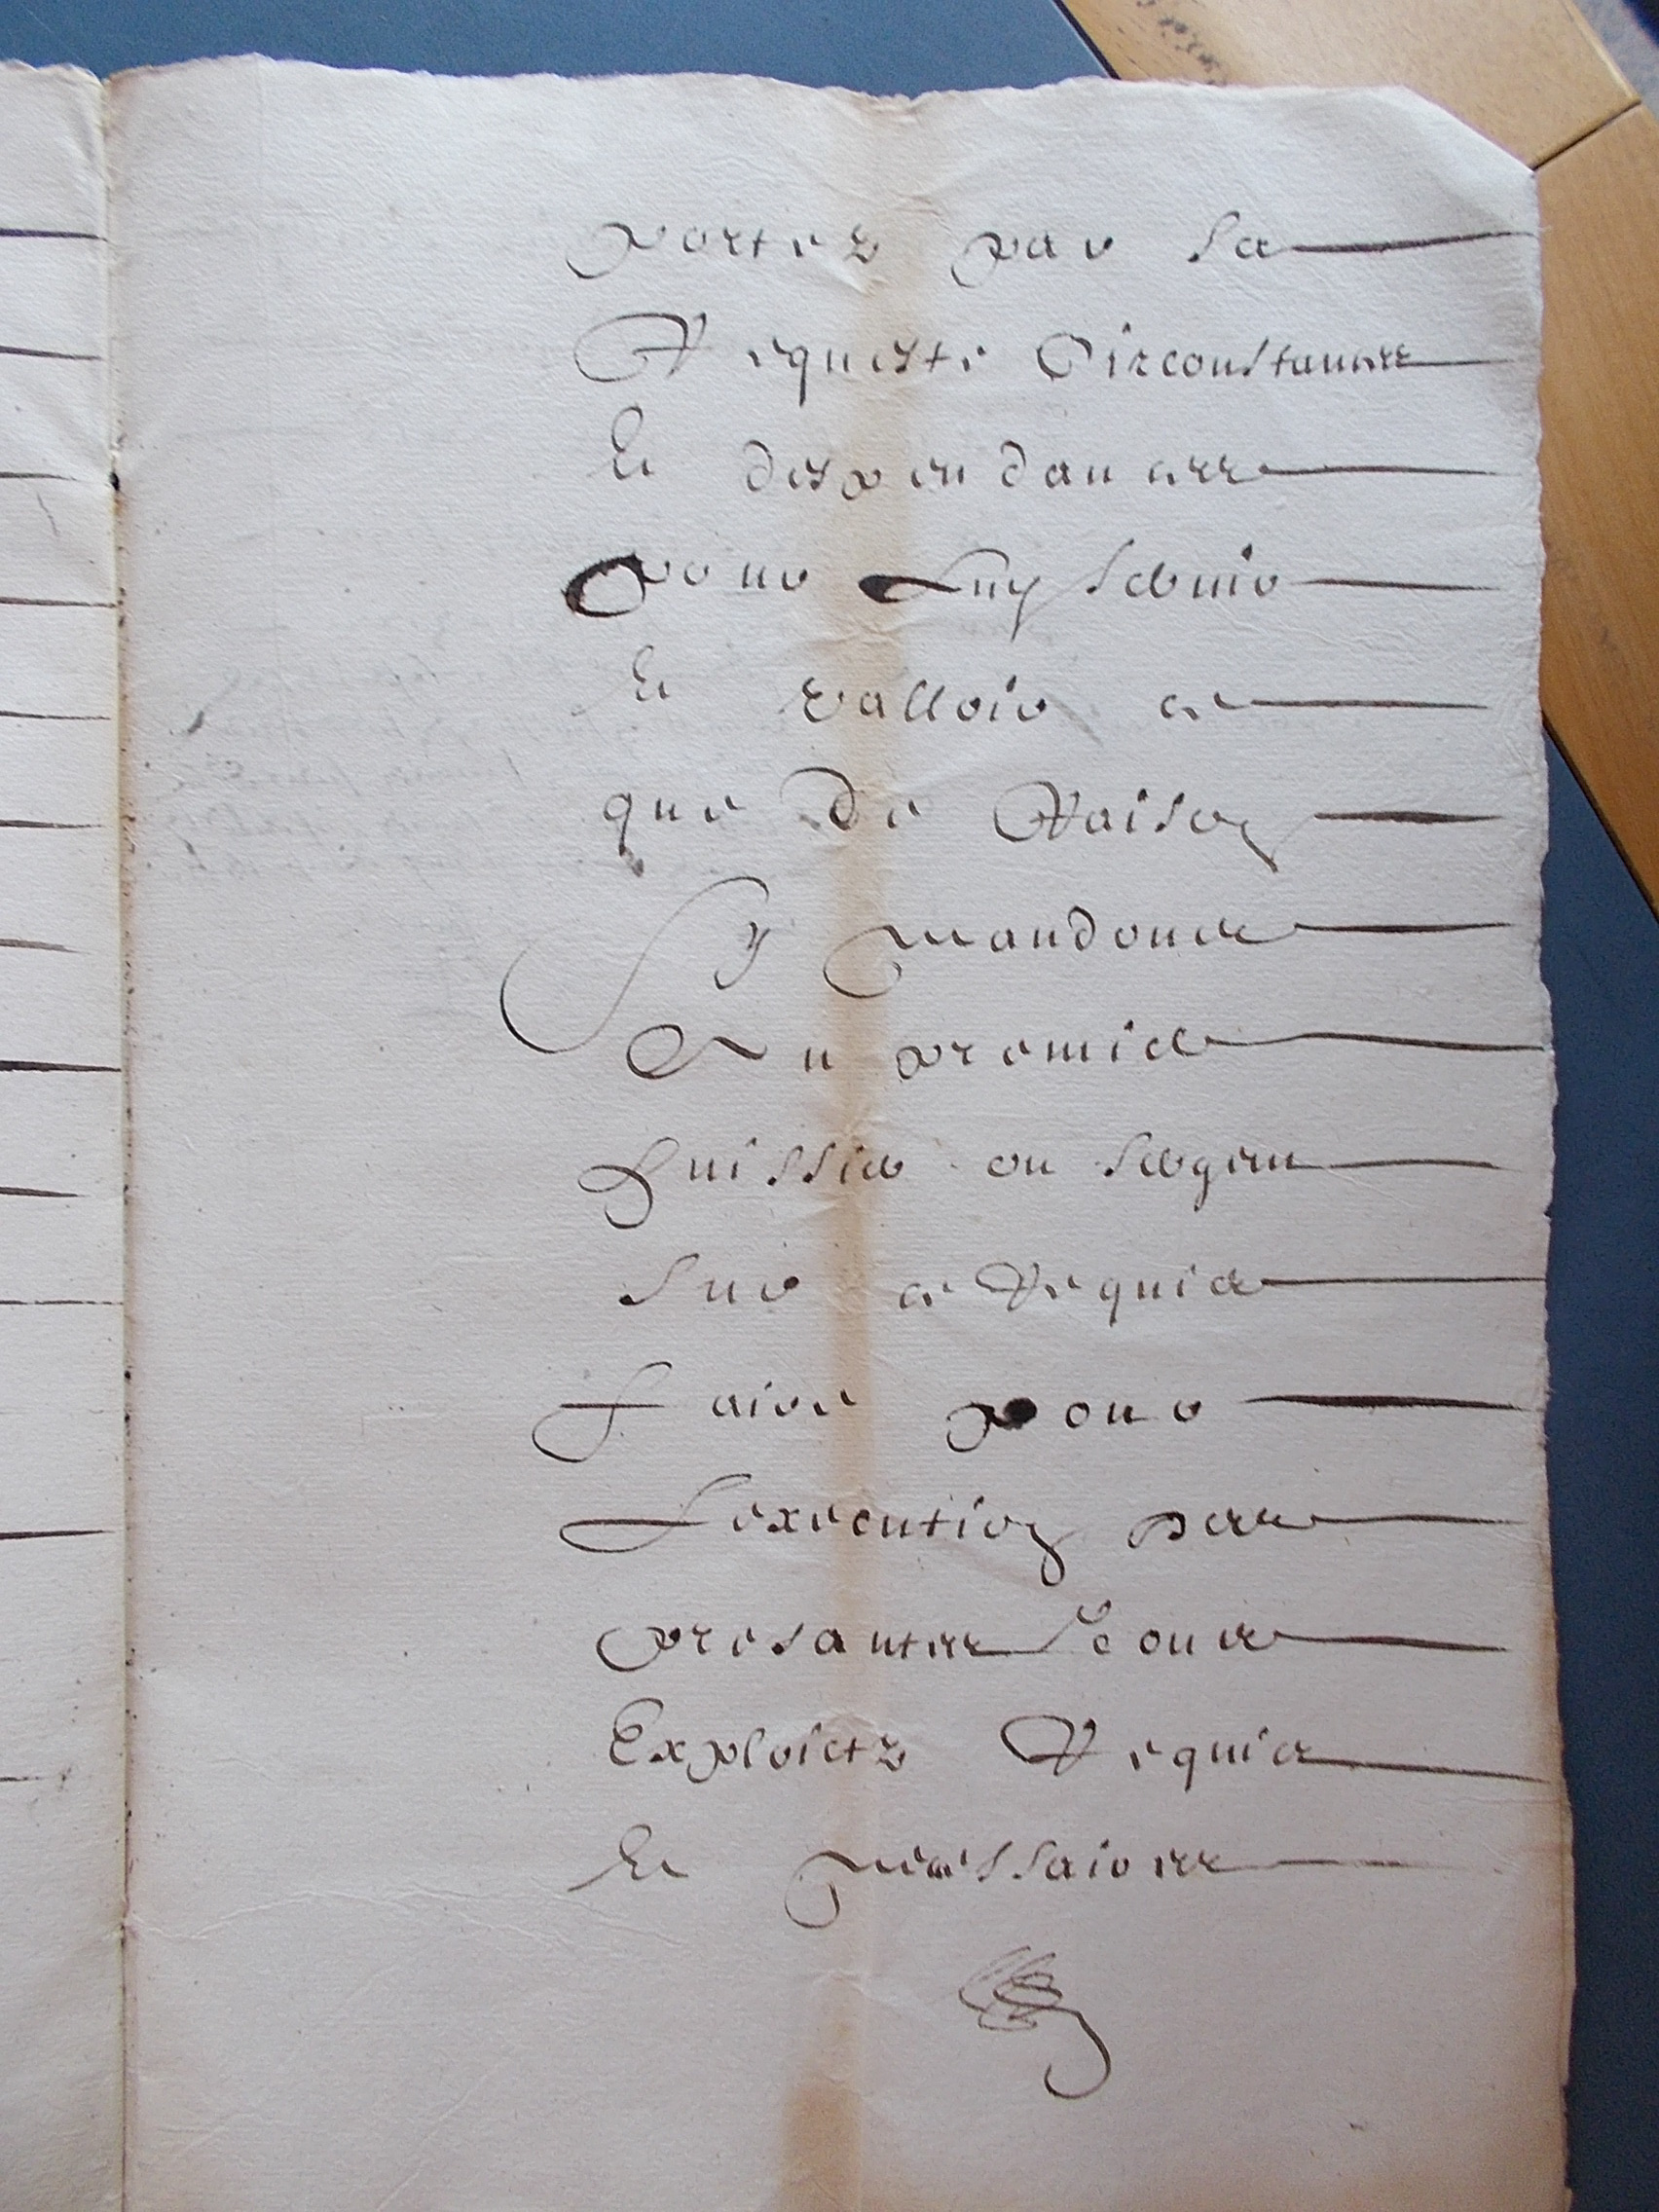 portez par sa
Requeste Circonstances
Et despendances
pour Luy servir
Et valloir ce
que De Raison
Sy mandons
Au premier
huissier ou sergen
sur ce Requis
Faire pour
Lexecution des
presantes tous
Exploictz Requis
Et nessaires